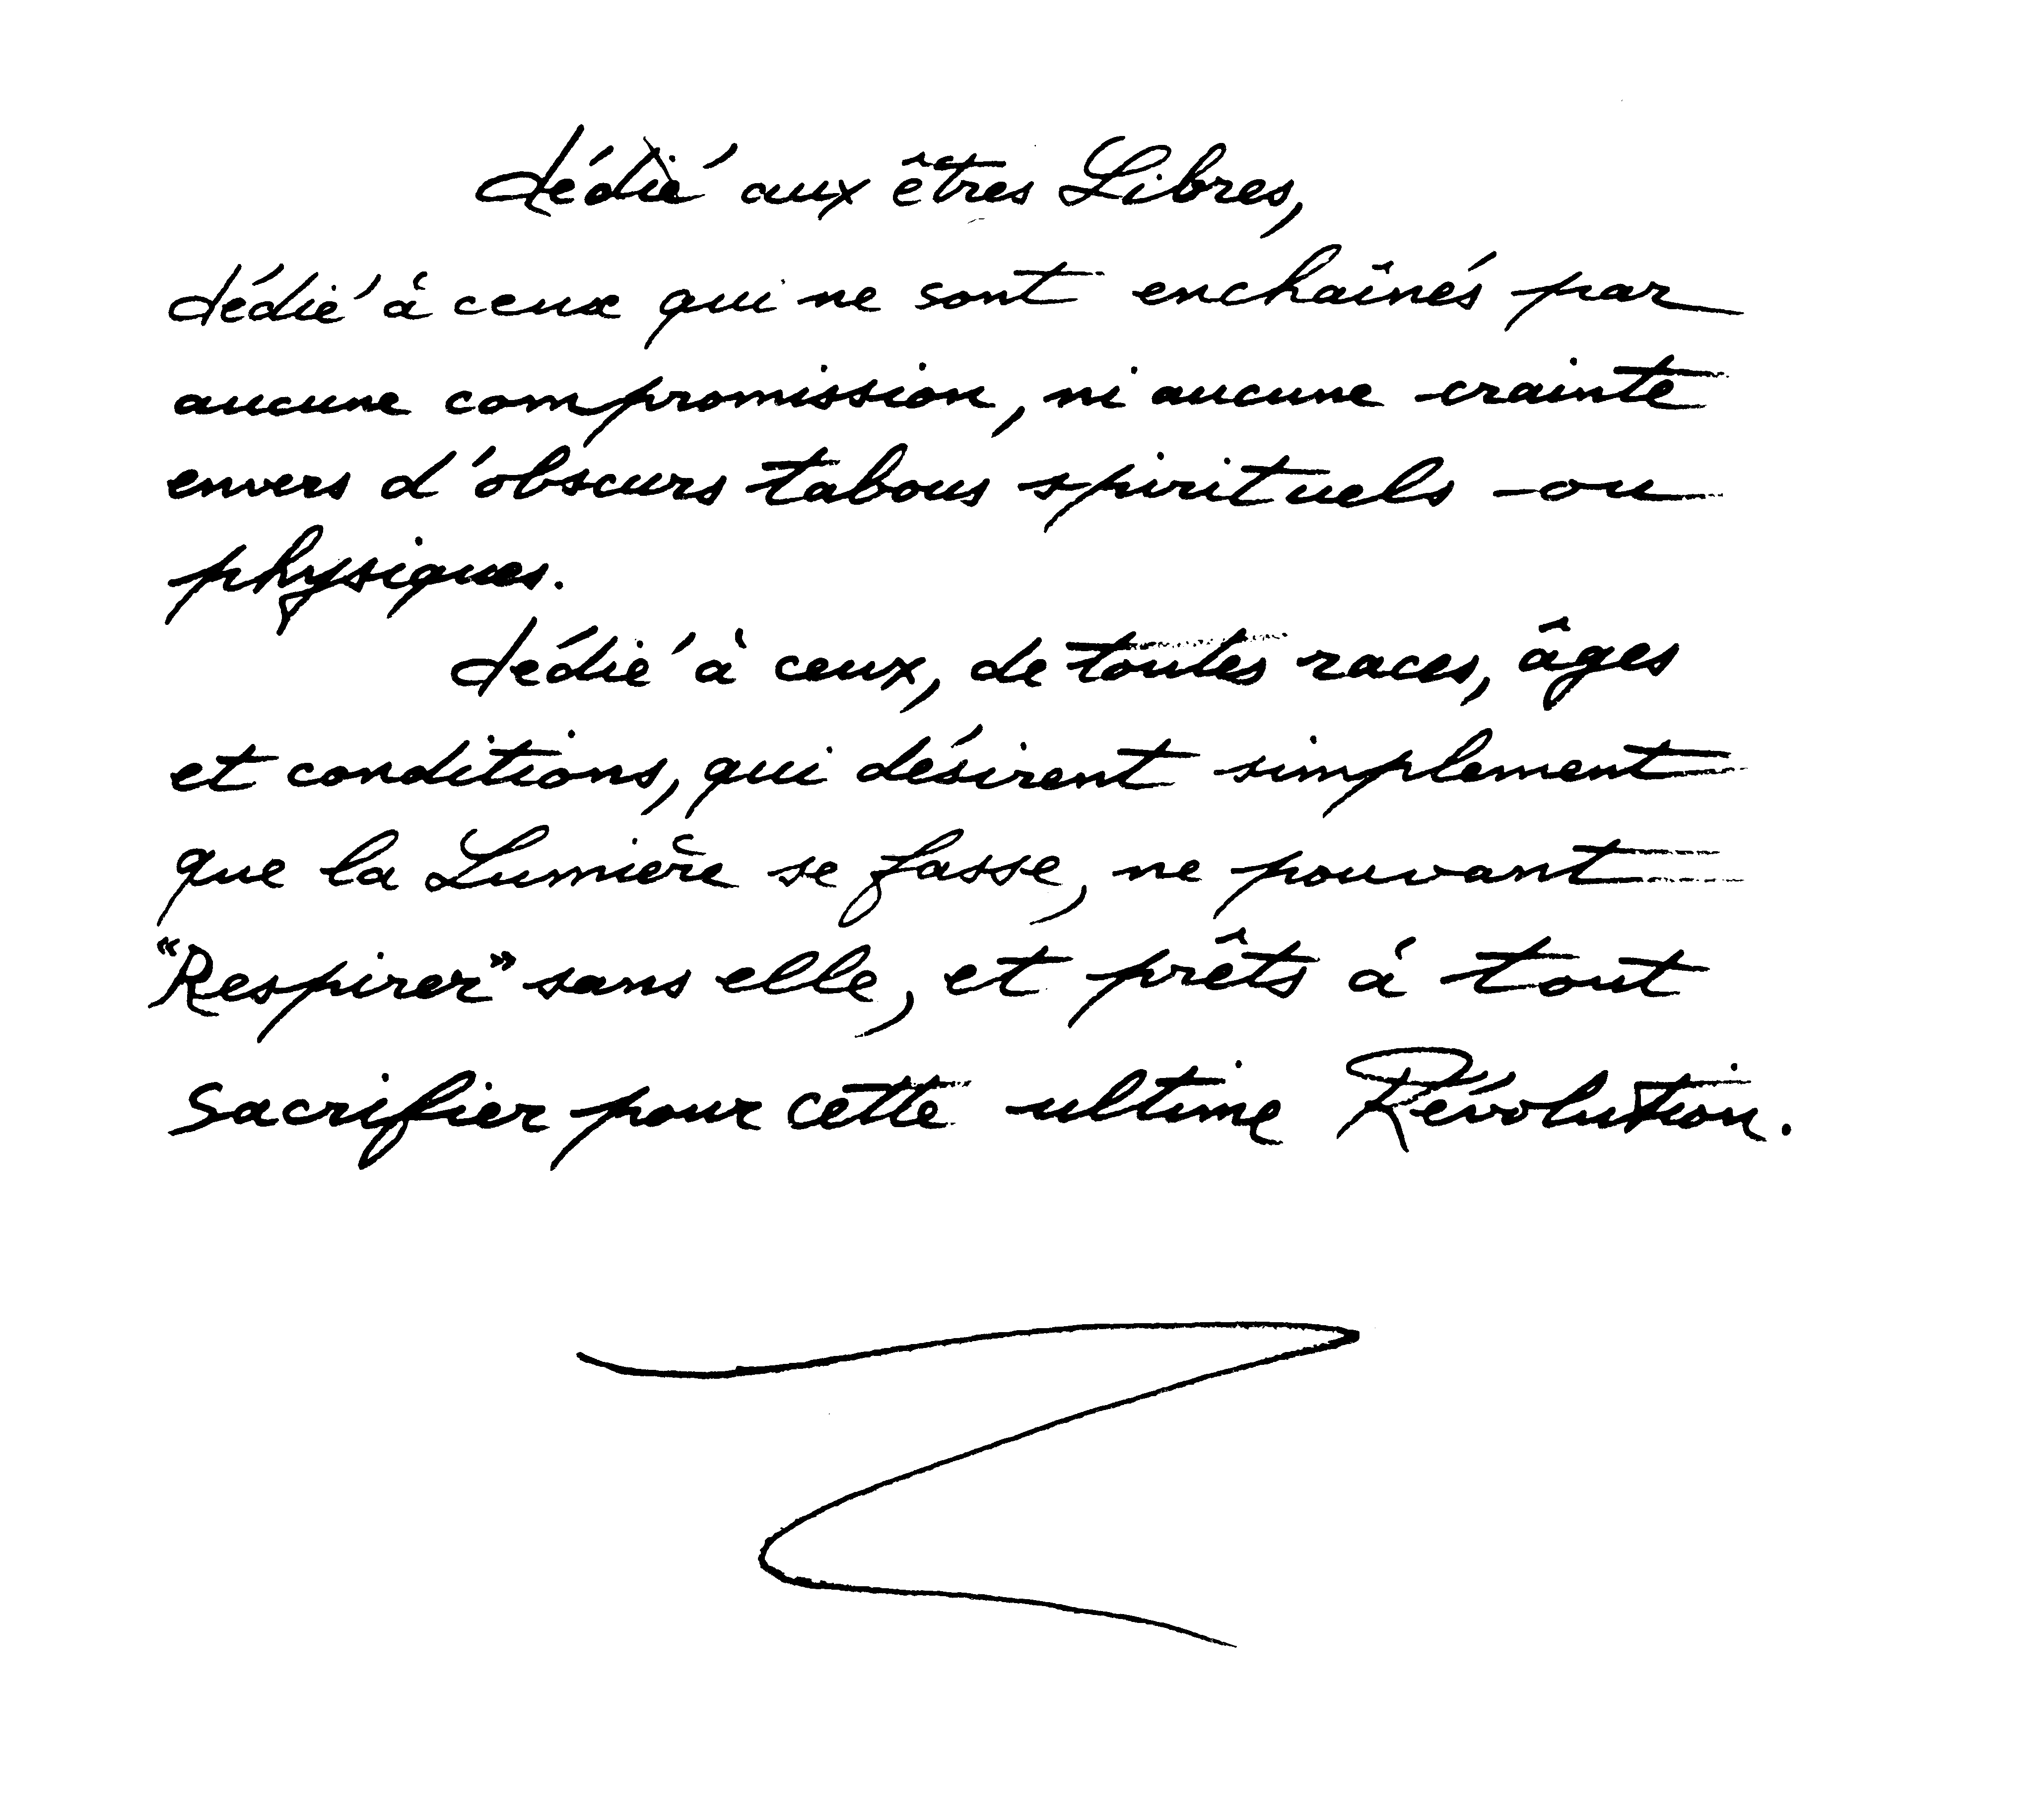 dédié aux êtres Libres,
dédié à ceux qui ne sont enchaînés par
aucune compromission, ni aucune crainte
envers d'obscurs tabous spirituels ou
physiques.
dédié à ceux, de toutes races, âges
et conditions, qui désirent simplement
que la Lumière se fasse, ne pouvant
"Respirer" sans elle, et prêts à tout
sacrifier pour cette ultime Révolution.